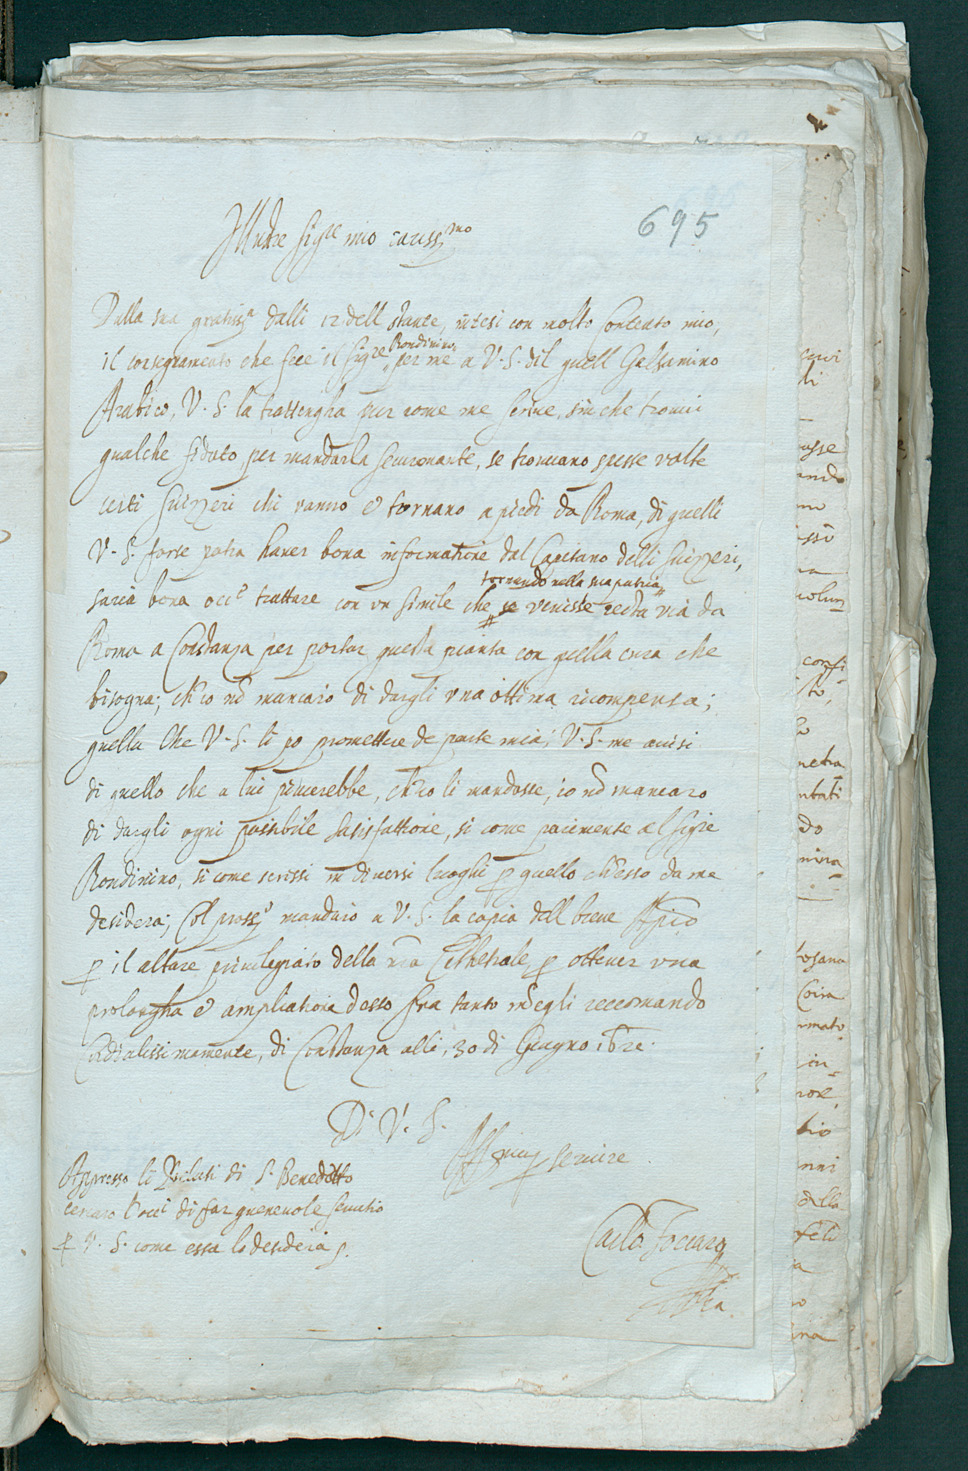 695
Illustre Sig.re mio cariss.mo
Dalla sua gratiss.a dalli 12 dell stante, intesi con molto contento mio,
il consegnamento che fece il Sig.re Rondinino per me a V.S. dil quell Gelsamino
Arabico, V.S. la trattengha pur come me scrive, sin che trouui
qualche fidato per mandarla securamante, se trouuano spesse volte
certi Suizzeri chi vanno e tornano a piedi da Roma, di quelli
V.S. forse potra hauer bona informatione dal Capitano delli Suizzeri,
saria bona occ.e trattare con un simile che tornando nella sua patria se venisse recta via da
Roma a Constanza per portar questa pianta con quella cura che
bisogna; ch'io nõ mancaro di dargli una ottima ricompensa;
quella che V.S. li po promettere de parte mia; V.S. me auisi
di quello che a lui piacerebbe, ch'io li mandasse, io nõ mancaro
di dargli ogni possibile satisfattione, si come parimente al Sig.re
Rondinino, si come scrissi in diuersi luoghi p quello ch'esso da me
desidera; Col pross.o mandaro a V.S. la copia dell breue Ap.co
p il altare priuilegiato della nra Cathedrale p ottener una
prolongha e ampliatione d'esso fra tanto me gli reccomando
Cordialissimamente, di Constanza alli, 30 di Giugno 1622.
Di V.S.
Aff.mo servire
Appresso li Prelati di S. Benedetto
cercaro l'occ.e di far queneuole seruitio
p V.S. come essa lo desidera
Carlo Foccaro